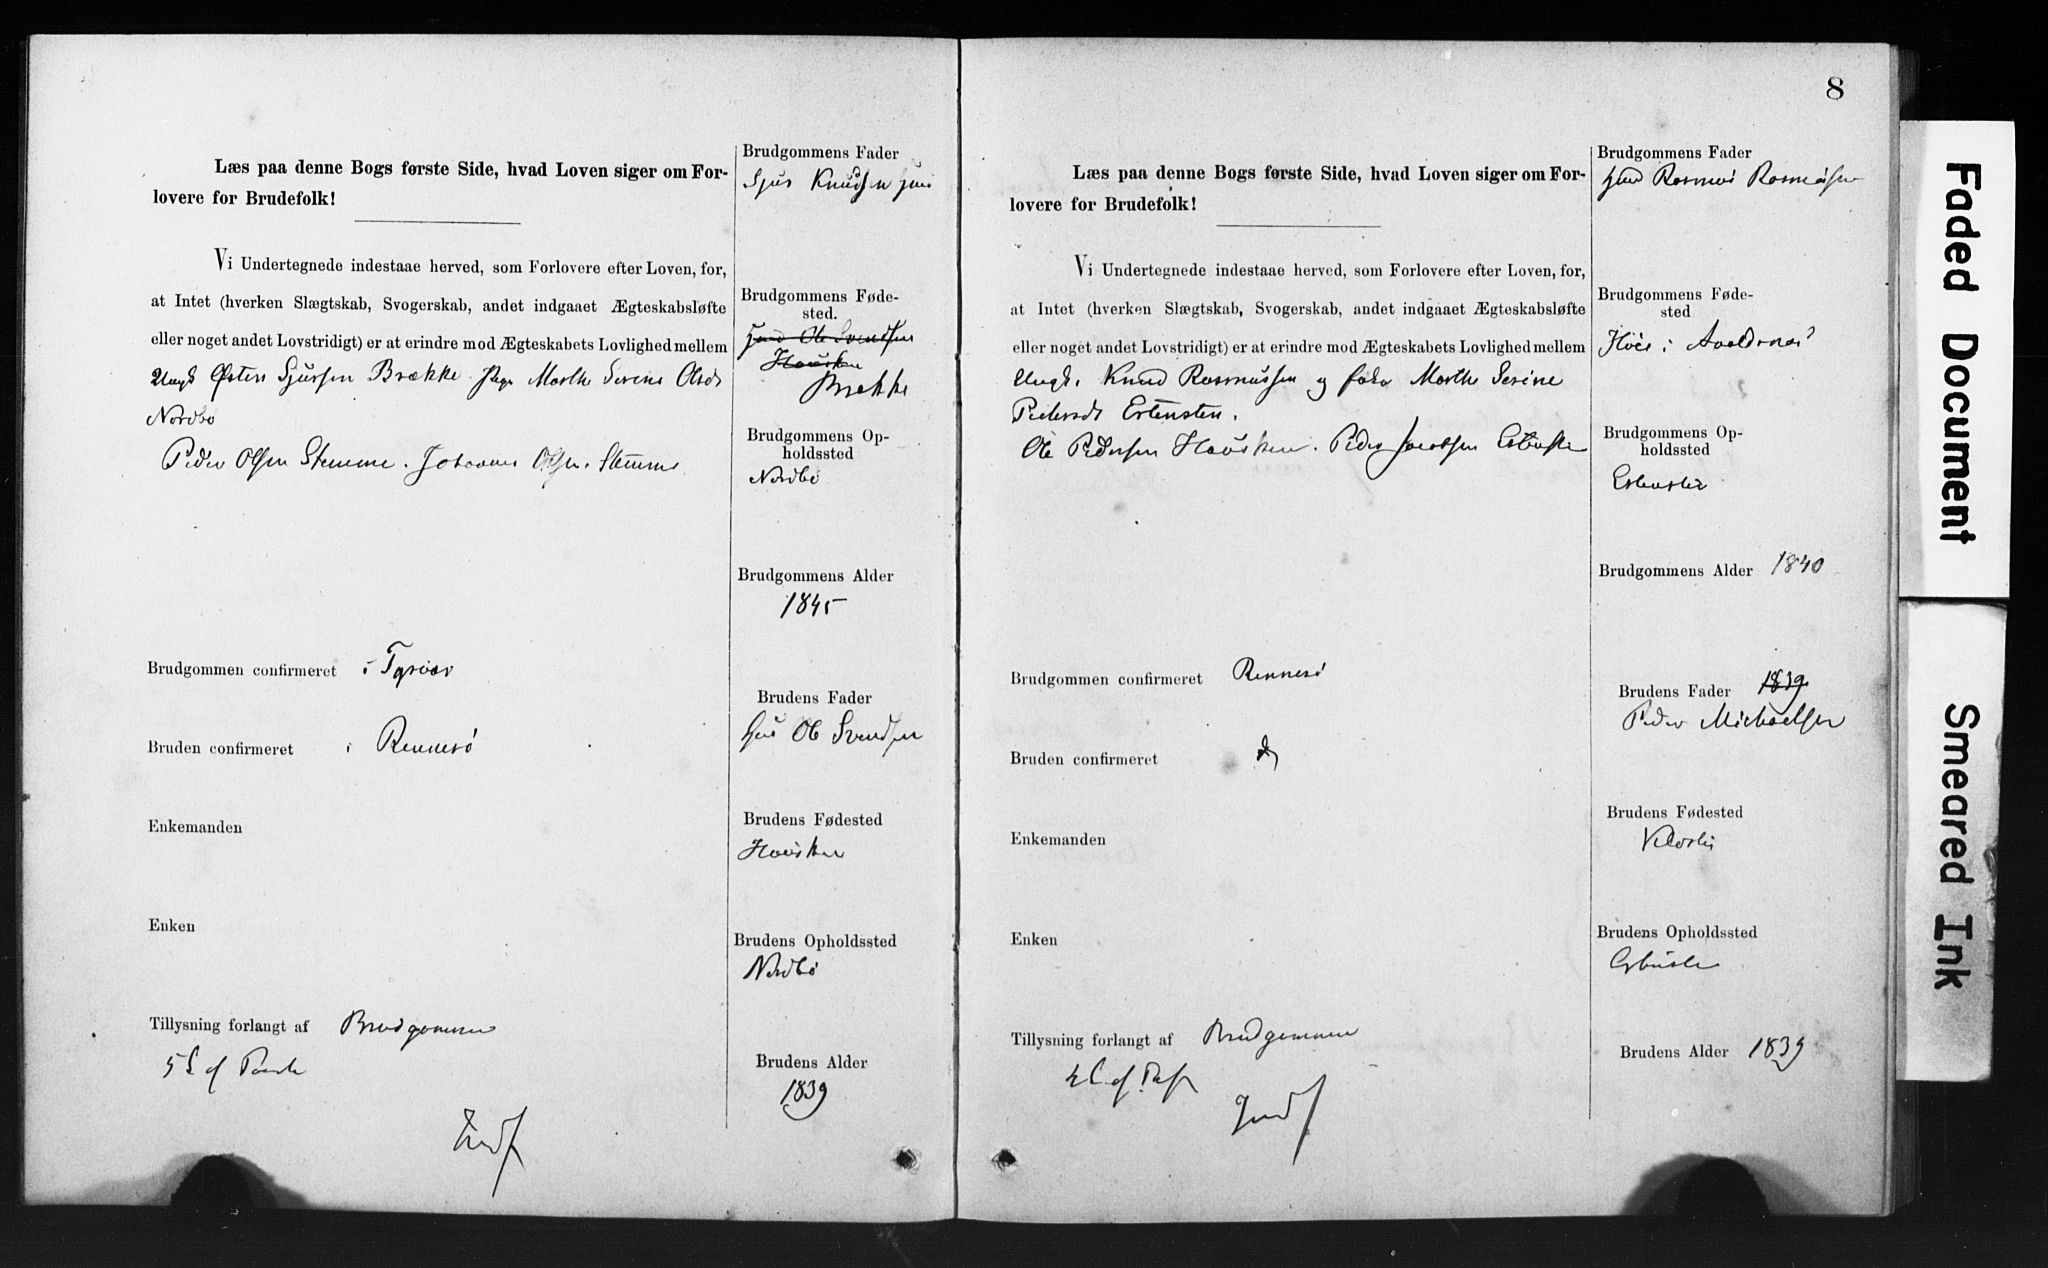 Læs paa denne Bogs første Side, hvad Loven siger om For-
lovere for Brudefolk!
Vi Undertegnede indestaae herved, som Forlovere efter Loven, for,
at Intet (hverken Slægtskab, Svogerskab, andet indgaaet Ægteskabsløfte
eller noget andet Lovstridigt) er at erindre mod Ægteskabets Lovlighed mellem
Ungk Østen Sjursen Brække Pige Marthe Serine Olsdt
Nordbø
Peder Olsen Stemme. Johannes Olsen Stemme
Brudgommen confirmeret i Tysvær
Bruden confirmeret i Rennesö
Enkemanden
Enken
Tillysning forlangt af Brudgommen
Brudgommens Fader
Sjur Knudsen
Brudgommens Føde-
sted.
Gmd Ole Svendsen
Hausken
Brække
Brudgommens Op-
holdssted
Nordbö
Brudgommens Alder
1845
Brudens Fader
Ole Svendsen
Brudens Fødested
Hausken
Brudens Opholdssted
Nordbö
Brudens Alder
1839
8
Læs paa denne Bogs første Side, hvad Loven siger om For-
lovere for Brudefolk!
Vi Undertegnede indestaae herved, som Forlovere efter Loven, for,
at Intet (hverken Slægtskab, Svogerskab, andet indgaaet Ægteskabsløfte
eller noget andet Lovstridigt) er at erindre mod Ægteskabets Lovlighed mellem
Ungk. Knud Rasmussen og Marthe Serine
Pedersdt
Ole Pedersen Hausken. Peder Jacobsen
Brudgommen confirmeret Rennesö
Bruden confirmeret
Enkemanden
Enken
Tillysning forlangt af Brudgommen
Brudgommens Fader
Gmd Rasmus Rasmussen
Brudgommens Føde-
sted
i Avaldsnes
Brudgommens Op-
holdssted
Brudgommens Alder 1840
Brudens Fader 1839
Peder Michaelsen
Brudens Fødested
Brudens Opholdssted
Brudens Alder 1839
Faded Document
Smeared Ink